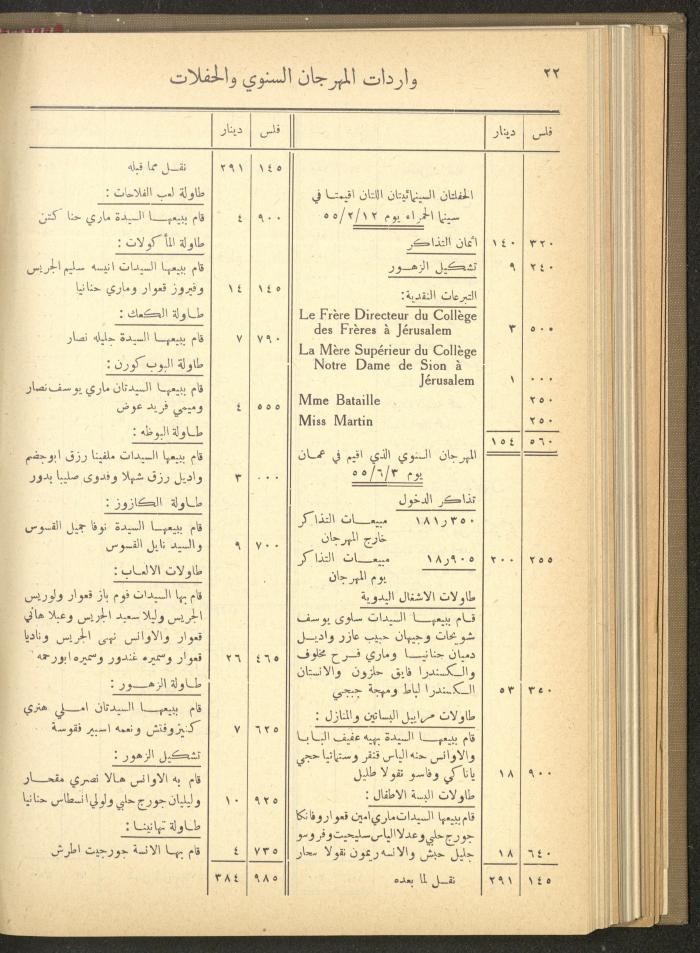 ٢٢
واردات المهرجان السنوي والحفلات
فلس دينار
الحفلتان السينمائيتان اللتان اقيمتا في
سينما الحمراء يوم ٥٥/٢/١٢
٣٢٠ ١٤٠ اثمان التذاكر
٢٤٠ ٩ تشكيل الزهور
التبرعات النقدية:
Le Frère Directeur du Collège
des Frères à Jérusalem ٣ ٥٠٠
La Mère Supérieur du Collège
Notre Dame de Sion à
Jérusalem ١ ٠٠٠
Mme Bataille ٢٥٠
Miss Martin ٢٥٠
٥٦٠ ١٥٤
المهرجان السنوي الذي اقيم في عمان
يوم ٥٥/٦/٣
تذاكر الدخول
١٨١٫٣٥٠ مبيعات التذاكر
خارج المهرجان
٢٥٥ ٢٠٠ ١٨٫٩٠٥ مبيعات التذاكر
يوم المهرجان
طاولات الاشغال اليدوية
قام ببيعها السيدات سلوى يوسف
شويحات وجيهان حبيب عازر واديل
دميان حنانيا وماري فرح مخلوف
والكسندرا فايق حلزون والانستان
٣٤٠ ٥٣ الكسندرا لباط ومهجة جبجي
طاولات مراييل البساتين والمنازل :
قام ببيعها السيدة بهيه عفيف البابا
والاوانس حنه الياس قنفر وستمانيا حجي
٩٠٠ ١٨ ياناكي وفاسو نقولا طليل
طاولات البسة الاطفال :
قام ببيعها السيدات ماري امين قعوار وفانكا
جورج حلبي وعدلا الياس سليحيت وفروسو
٦٤٠ ١٨ جليل حبش والانسه ريمون نقولا سحار
١٤٥ ٢٩١ نقل لما بعده
فلس دينار
١٤٥ ٢٩١ نقل مما قبله
طاولة لعب الفلاحات :
٩٠٠ ٤ قام ببيعها السيدة ماري حنا كتن
طاولة المأكولات :
قام ببيعها السيدات انيسه سليم الجريس
١٤٥ ١٤ وفيروز قعوار وماري حنانيا
طاولة الكعك :
٧٩٠ ٧ قام ببيعها السيدة جليله نصار
طاولة البوب كورن :
قام ببيعها السيدتان ماري يوسف نصار
٥٥٥ ٤ وميمي فريد عوض
طاولة البوظه :
قام ببيعها السيدات ملفينا رزق ابوجضم
٠٠٠ ٣ واديل رزق شهلا وفدوى صليبا بدور
طاولة الكازوز :
قام ببيعها السيدة نوفا جميل القسوس
٧٠٠ ٩ والسيد نايل القسوس
طاولات الالعاب :
قام بها السيدات فوم باز قعوار ولوريس
الجريس وليلا سعيد الجريس وعبلا هاني
قعوار والاوانس نهى الجريس وناديا
٤٦٥ ٢٦ قعوار وسميره غندور وسميره ابورحمه
طاولة الزهور :
قام ببيعها السيدتان املي هنري
٦٢٥ ٧ كنيزوفتش ونعمه اسبير فقوسة
تشكيل الزهور :
قام به الاوانس هالا نصري مقحار
٩٢٥ ١٠ وليليان جورج حلبي ولولي انسطاس حنانيا
طاولة تهانينا :
٧٣٥ ٤ قام بها الانسة جورجيت اطرش
٩٨٥ ٣٨٤